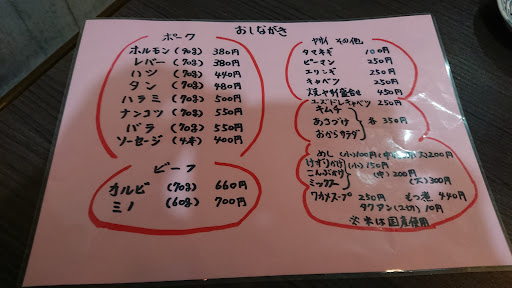 おしながき
ポーク
ホルモン (70g) 380円
レバー (70g) 380円
ハツ (70g) 440円
タン (70g) 480円
ハラミ (70g) 500円
ナンコツ (70g) 550円
バラ (70g) 550円
ソーセージ (4本) 400円
ビーフ
カルビ (70g) 660円
ミノ (60g) 700円
ヤサイ その他
タマネギ 100円
ピーマン 250円
エリンギ 250円
キャベツ 250円
焼ヤサイ盛合せ 450円
ユズドレキャベツ 250円
キムチ
あさづけ 各350円
おからサラダ
めし (小)100円 (大)200円
けずりかけ (小)150円
こんぶのり (中)200円
ミックス (大)300円
ワカメスープ 250円 もつ煮 440円
タクアン(2切) 10円
※米は国産使用